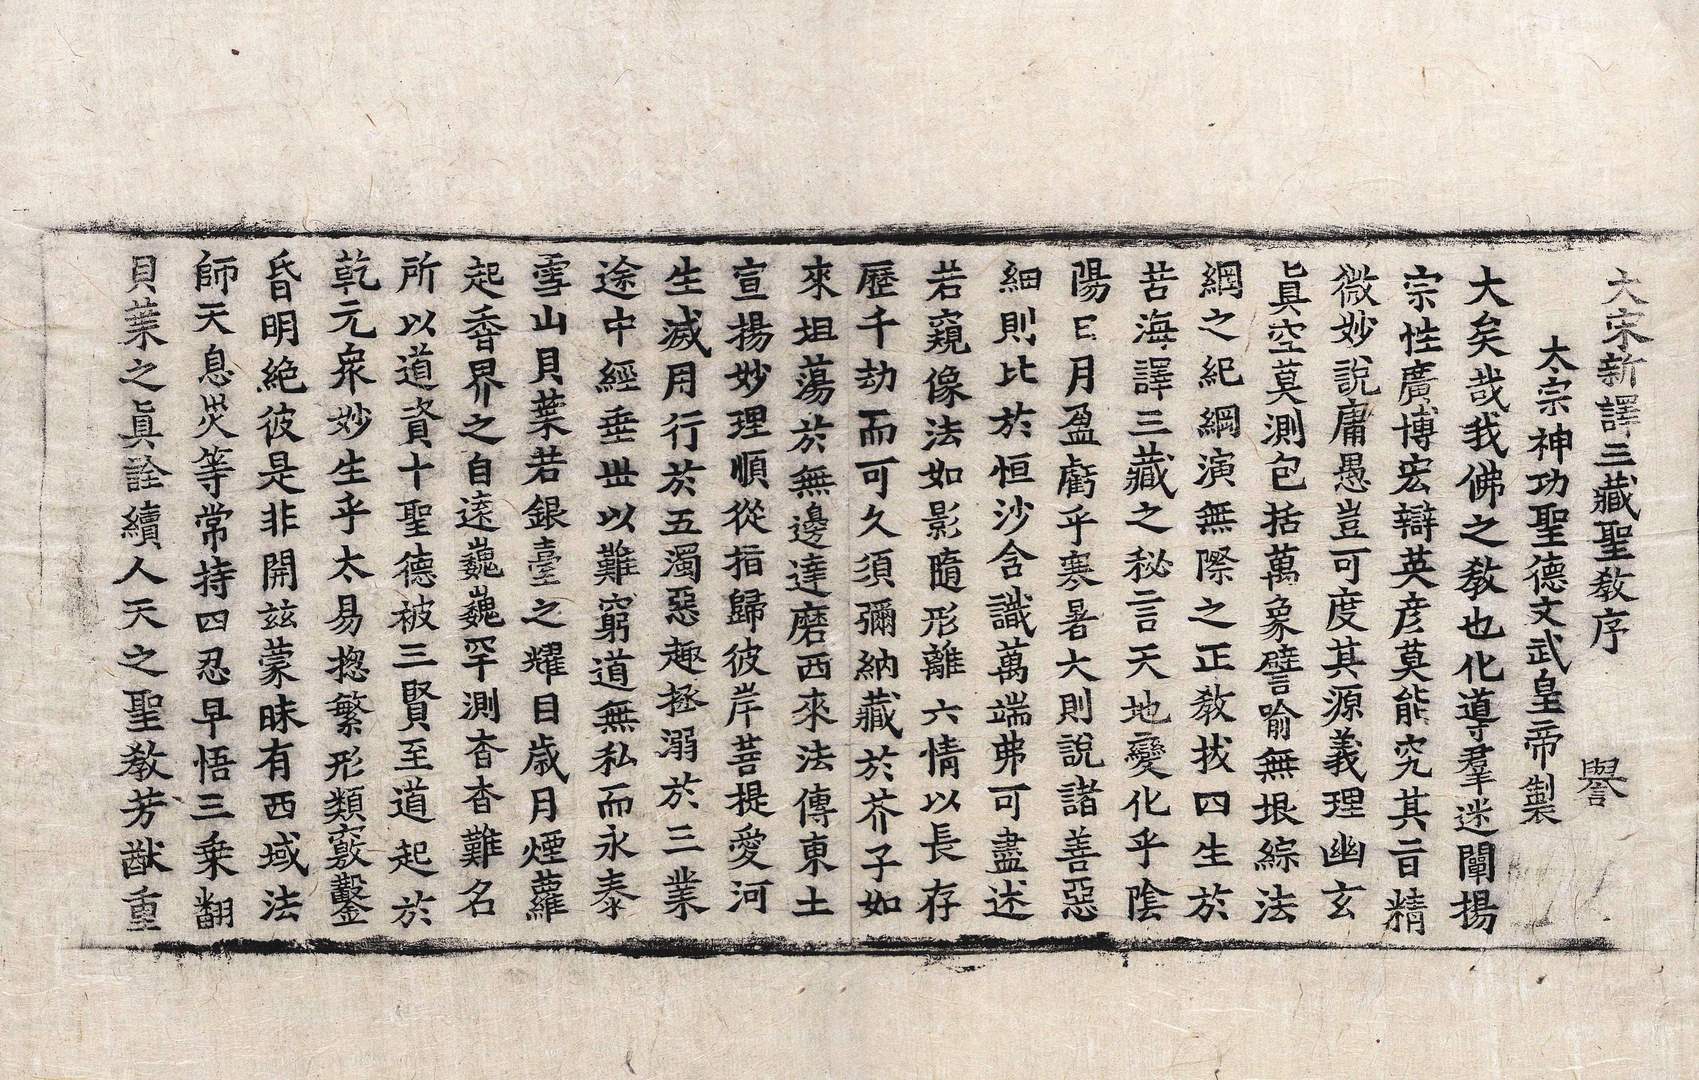 大宋新譯三藏聖敎序 譽
太宗神功聖德文武皇帝製
大矣哉我佛之敎也化導羣迷闡揚
宗性廣博宏辯英彦莫能究其旨精
微妙說庸愚豈可度其源義理幽玄
眞空莫測包括萬象譬喻無垠綜法
網之紀綱演無際之正敎拔四生於
苦海譯三藏之秘言天地變化乎陰
陽日月盈虧乎寒暑大則說諸善惡
細則比於恒沙含識萬端弗可盡述
若窺像法如影隨形離六情以長存
歷千劫而可久須彌納藏於芥子如
來坦蕩於無邊達磨西來法傳東土
宣揚妙理順從指歸彼岸菩提愛河
生滅用行於五濁惡趣拯溺於三業
途中經垂世以難窮道無私而永泰
雪山貝葉若銀臺之耀目歲月煙蘿
起香界之自遠巍巍罕測杳杳難名
所以道資十聖德被三賢至道起於
乾元衆妙生乎太易揔繁形類竅鑿
昏明絶彼是非開玆蒙昧有西域法
師天息灾等常持四忍早悟三乘翻
貝葉之眞詮續人天之聖敎芳猷重